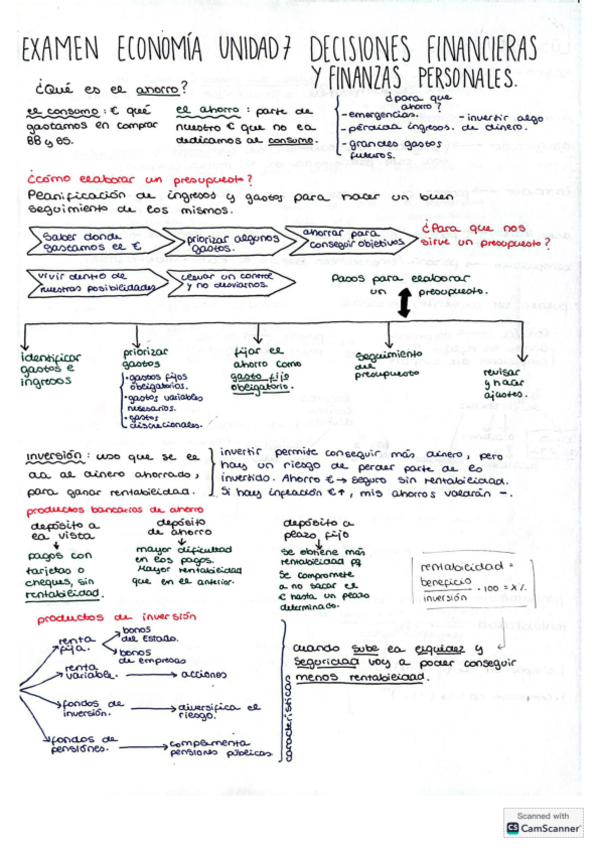 EXAMEN ECONOMÍA UNIDAD 7 DECISIONES FINANCIERAS
Y FINANZAS PERSONALES.
¿Qué es el ahorro?
el consumo: € qué
gastamos en comprar
BB y SS.
el ahorro: parte de
nuestro € que no ea
dedicamos al consumo.
¿para que
ahorro?
- emergencias.
- pérdida ingresos.
- grandes gastos
futuros.
- invertir algo
de dinero.
¿cómo elaborar un presupuesto?
Planificación de ingresos y gastos para hacer un buen
seguimiento de los mismos.
Saber donde
gastamos el €
priorizar algunos
gastos.
ahorrar para
conseguir objetivos
¿Para que nos
sirve un presupuesto?
vivir dentro de
nuestras posibilidades
llevar un control
y no desviarnos.
Pasos para elaborar
un presupuesto.
identificar
gastos e
ingresos
priorizar
gastos
• gastos fijos
obligatorios.
• gastos variables
necesarios.
• gastos
discrecionales.
fijar el
ahorro como
gasto fijo
obligatorio.
seguimiento
del
presupuesto
revisar
y hacer
ajustes.
inversión: uso que se le
da al dinero ahorrado,
para ganar rentabilidad.
invertir permite conseguir más dinero, pero
hay un riesgo de perder parte de lo
invertido. Ahorro € → seguro sin rentabilidad.
Si hay inflación €↑, mis ahorros valdrán -.
productos bancarios de ahorro
depósito a
la vista
pagos con
tarjetas o
cheques, sin
rentabilidad.
depósito
de ahorro
mayor dificultad
en los pagos.
Mayor rentabilidad
que en el anterior.
depósito a
plazo fijo
se obtiene más
rentabilidad pq
se compromete
a no sacar el
€ hasta un plazo
determinado.
rentabilidad =
beneficio
inversión
· 100 = x%
productos de inversión
renta
fija.
bonos
del Estado.
bonos
de empresas
renta
variable.
acciones
fondos de
inversión.
diversifica el
riesgo.
fondos de
pensiones.
complementa
pensiones públicas
características
cuando sube la liquidez y
seguridad voy a poder conseguir
menos rentabilidad.
Scanned with
CS CamScanner